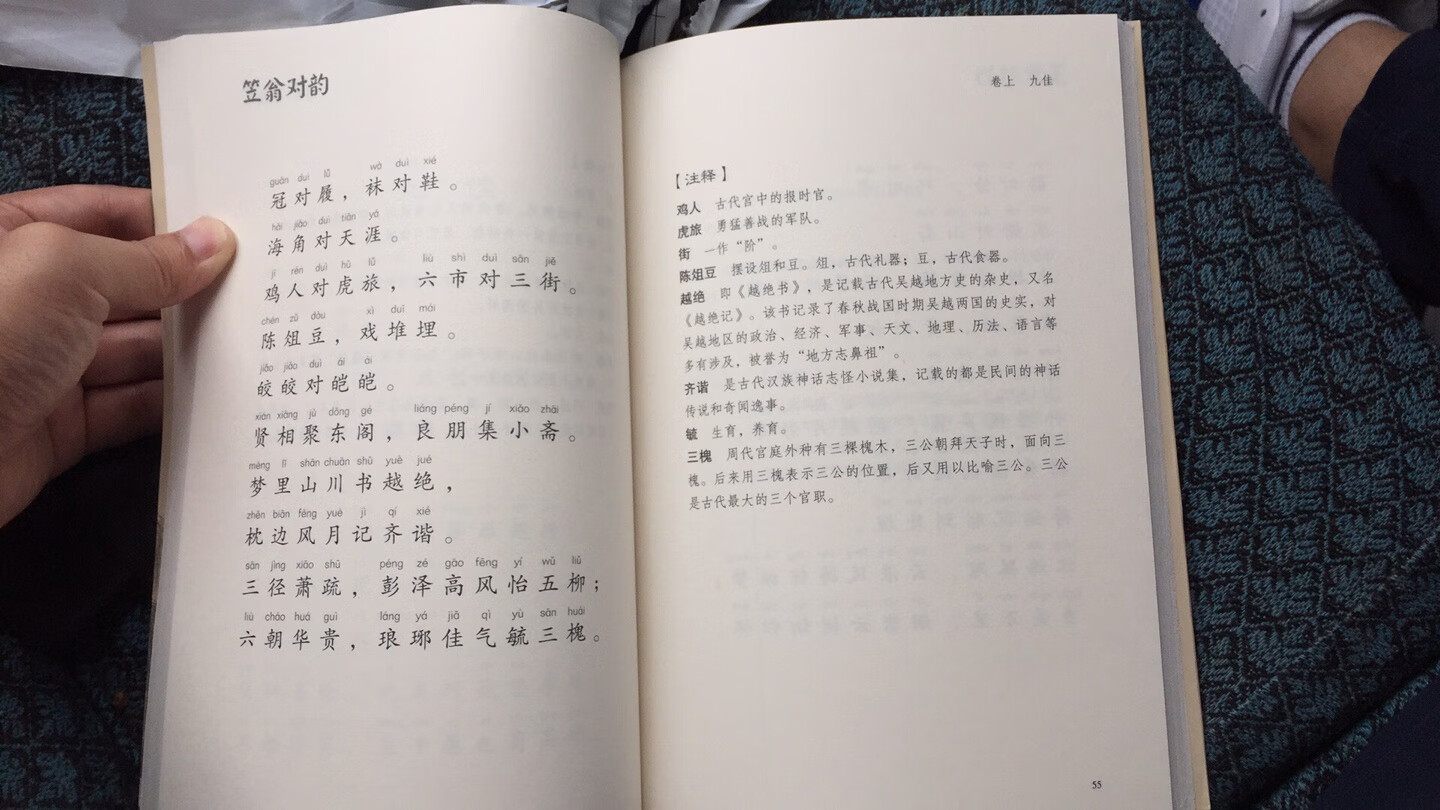 笠翁对韵
guān duì lǚ wà duì xié
冠对履，袜对鞋。
hǎi jiǎo duì tiān yá
海角对天涯。
jī rén duì hǔ lǚ liù shì duì sān jiē
鸡人对虎旅，六市对三街。
chén zǔ dòu xì duī mái
陈俎豆，戏堆埋。
jiǎo jiǎo duì ái ái
皎皎对皑皑。
xián xiàng jù dōng gé liáng péng jí xiǎo zhāi
贤相聚东阁，良朋集小斋。
mèng lǐ shān chuān shū yuè jué
梦里山川书越绝，
zhěn biān fēng yuè jì qí xié
枕边风月记齐谐。
sān jìng xiāo shū péng zé gāo fēng yí wǔ liǔ
三径萧疏，彭泽高风怡五柳；
liù cháo huá guì láng yá jiā qì yù sān huái
六朝华贵，琅琊佳气毓三槐。
卷上 九佳
【注释】
鸡人 古代宫中的报时官。
虎旅 勇猛善战的军队。
街 一作“阶”。
陈俎豆 摆设俎和豆。俎，古代礼器；豆，古代食器。
越绝 即《越绝书》，是记载古代吴越地方史的杂史，又名
《越绝记》。该书记录了春秋战国时期吴越两国的史实，对
吴越地区的政治、经济、军事、天文、地理、历法、语言等
多有涉及，被誉为“地方志鼻祖”。
齐谐 是古代汉族神话志怪小说集，记载的都是民间的神话
传说和奇闻逸事。
毓 生育，养育。
三槐 周代宫庭外种有三棵槐木，三公朝拜天子时，面向三
槐。后来用三槐表示三公的位置，后又用以比喻三公。三公
是古代最大的三个官职。
55